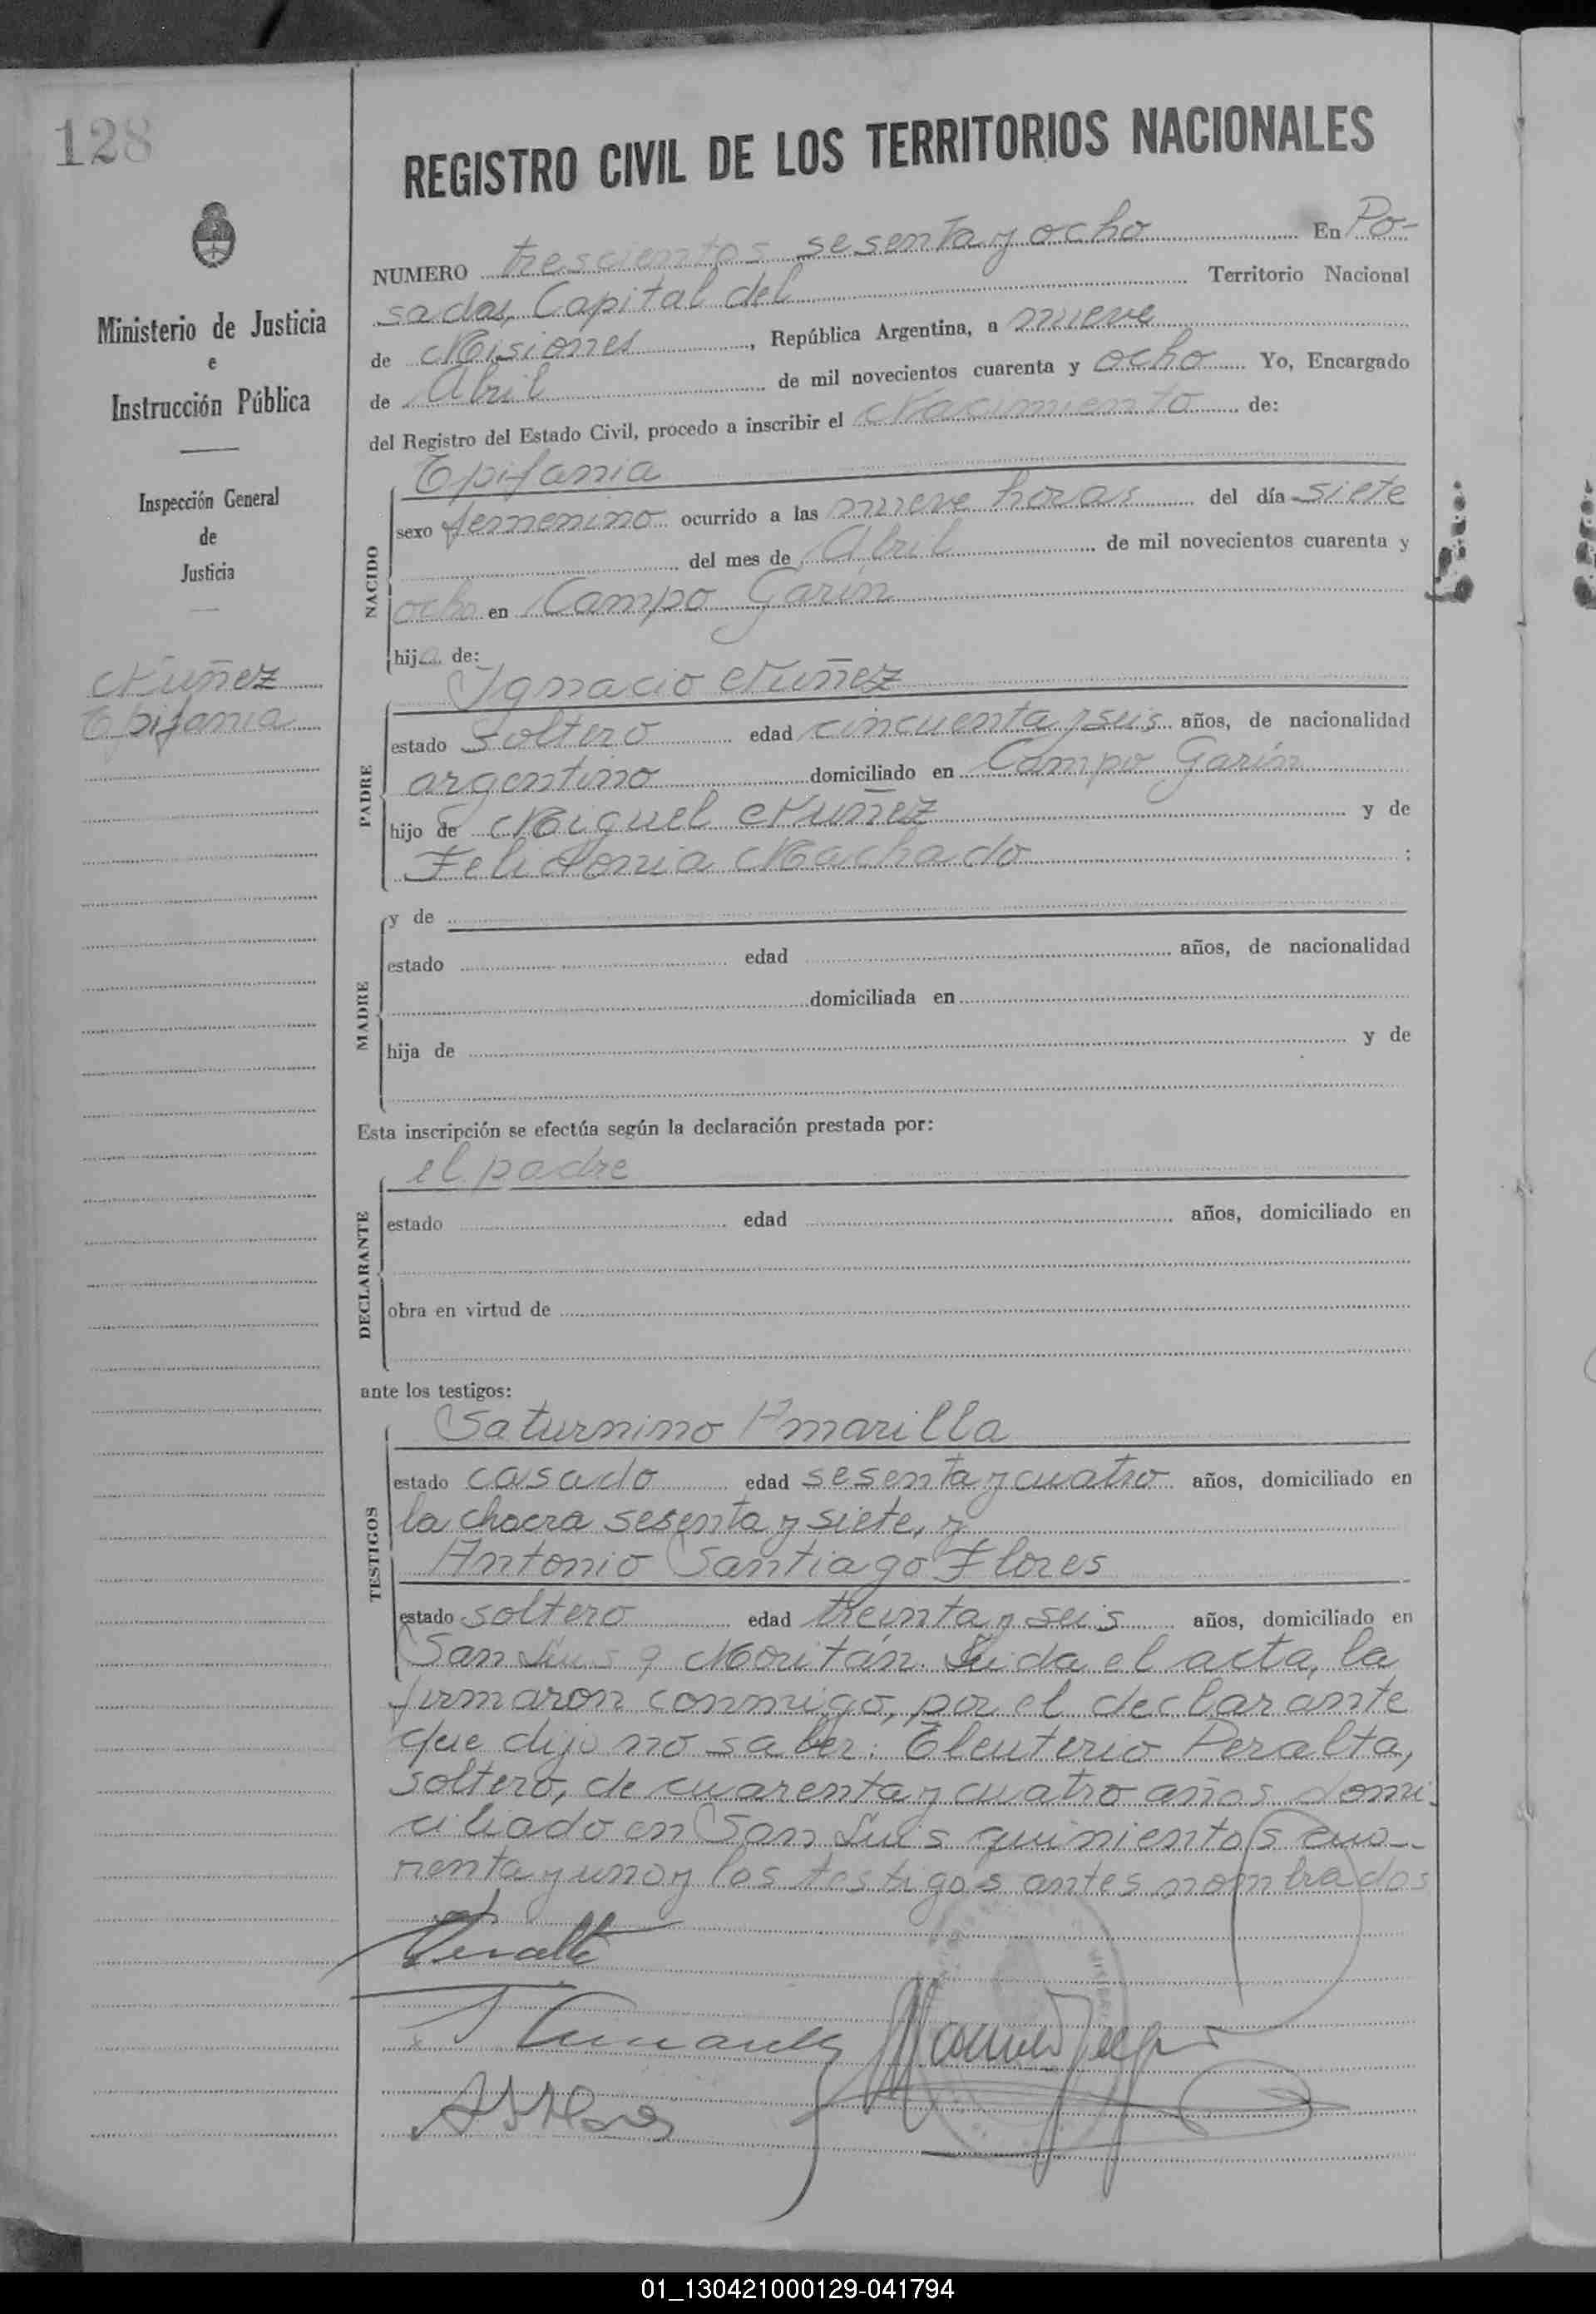 128
REGISTRO CIVIL DE LOS TERRITORIOS NACIONALES
Ministerio de Justicia
e
Instrucción Pública
Inspección General
de
Justicia
Nuñez
Epifania
NUMERO trescientos sesenta y ocho En Po-
sadas, Capital del Territorio Nacional
de Misiones, República Argentina, a nueve
de Abril de mil novecientos cuarenta y ocho Yo, Encargado
del Registro del Estado Civil, procedo a inscribir el Nacimiento de:
NACIDO
Epifania
sexo femenino ocurrido a las nueve horas del día siete
del mes de Abril de mil novecientos cuarenta y
ocho en Campo Garin
hija de:
PADRE
Ignacio Nuñez
estado soltero edad cincuenta y seis años, de nacionalidad
argentino domiciliado en Campo Garin
hijo de Miguel Nuñez y de
Felidonia Machado ;
MADRE
y de
estado edad años, de nacionalidad
domiciliada en
hija de y de
Esta inscripción se efectúa según la declaración prestada por:
DECLARANTE
el padre
estado edad años, domiciliado en
obra en virtud de
ante los testigos:
TESTIGOS
Saturnino Amarilla
estado casado edad sesenta y cuatro años, domiciliado en
la chacra sesenta y siete, y
Antonio Santiago Flores
estado soltero edad treinta y seis años, domiciliado en
San Luis y Moritán. Leida el acta, la
firmaron conmigo, por el declarante
que dijo no saber: Eleuterio Peralta,
soltero, de cuarenta y cuatro años domi-
ciliado en San Luis quinientos cua-
renta y uno y los testigos antes nombrados
Peralta
ASFlores
01_130421000129-041794